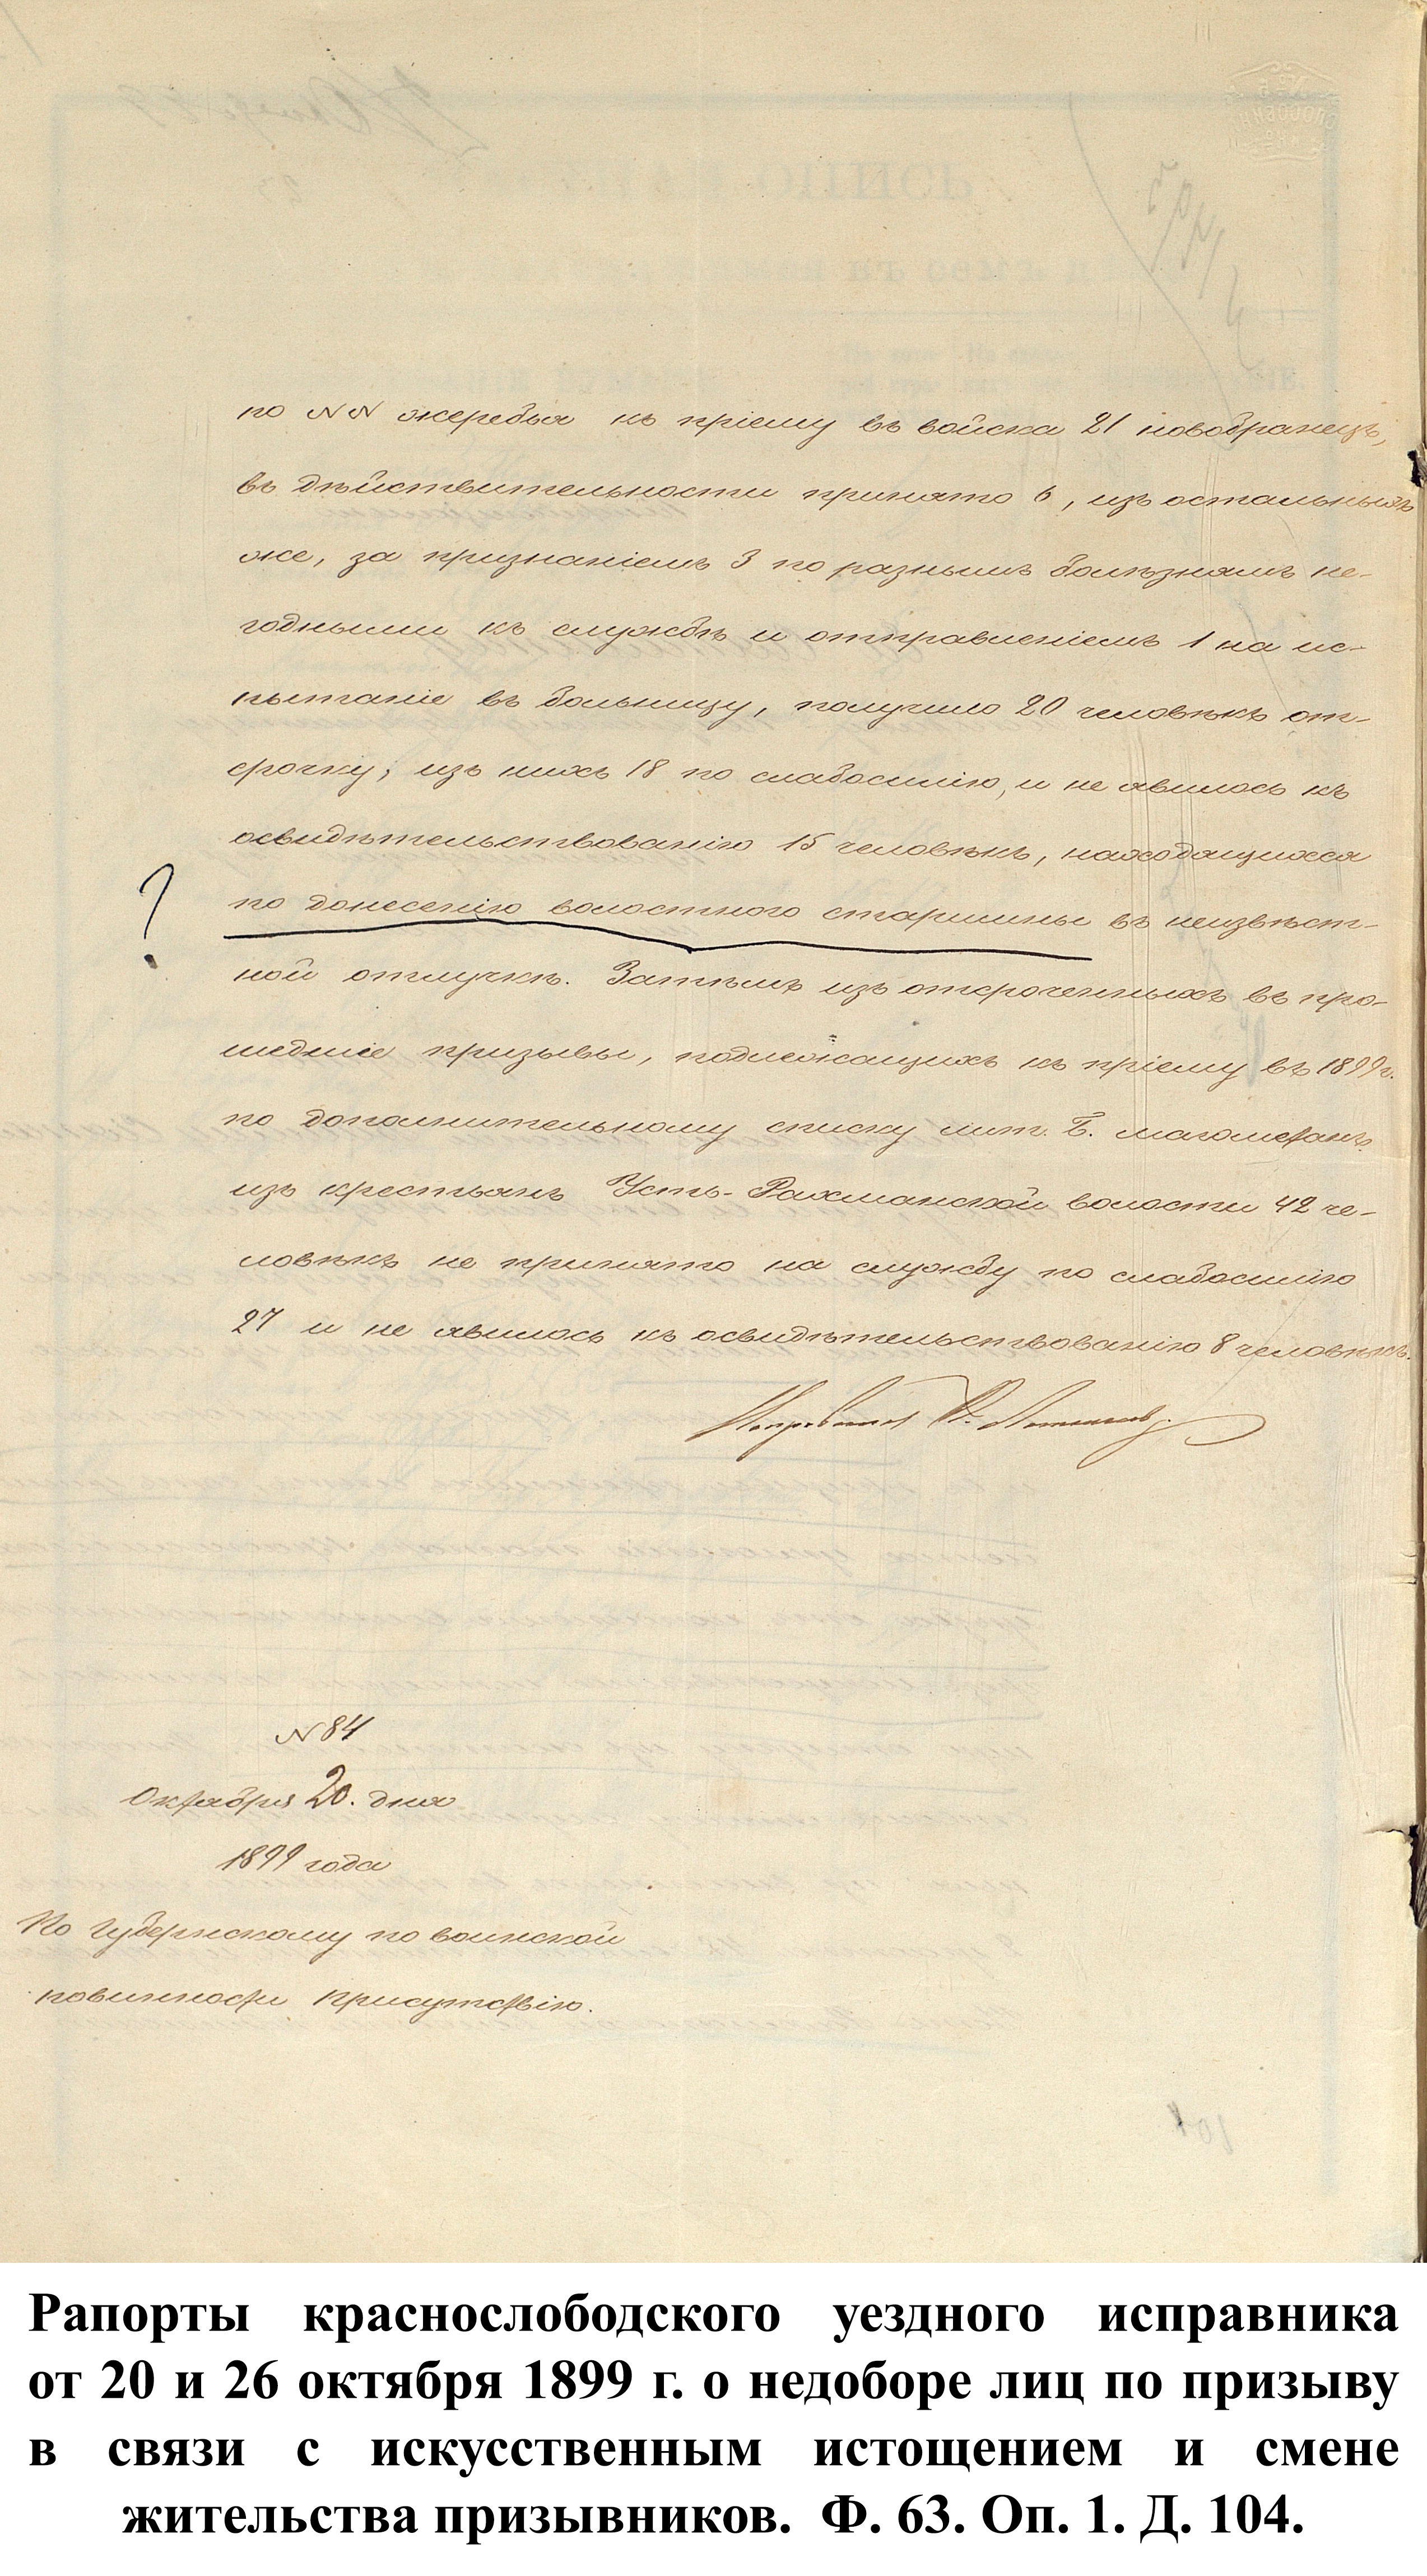 по NN жеребья къ пріему въ войска 21 новобранецъ,
въ дѣйствительности принято 6, изъ остальныхъ
же, за признаніемъ 3 по разнымъ болѣзнямъ не-
годными къ службѣ и отправленіемъ 1 на ис-
пытаніе въ больницу, получило 20 человѣкъ от-
срочку; изъ нихъ 18 по слабосилію, и не явилось къ
освидѣтельствованію 15 человѣкъ, находящихся
?
по донесенію волостного старшины въ неизвѣст-
ной отлучкѣ. Затѣмъ изъ отсроченныхъ въ про-
шедшіе призывы, подлежащихъ къ пріему въ 1899 г.
по дополнительному списку лит. Б. магометанъ
изъ крестьянъ Усть-Рахманской волости 42 че-
ловѣкъ не принято на службу по слабосилію
27 и не явилось къ освидѣтельствованію 8 человѣкъ.
Исправникъ
N 84
Октября 20. дня
1899 года
По Губернскому по воинской
повинности Присутствію.
Рапорты краснослободского уездного исправника
от 20 и 26 октября 1899 г. о недоборе лиц по призыву
в связи с искусственным истощением и смене
жительства призывников. Ф. 63. Оп. 1. Д. 104.